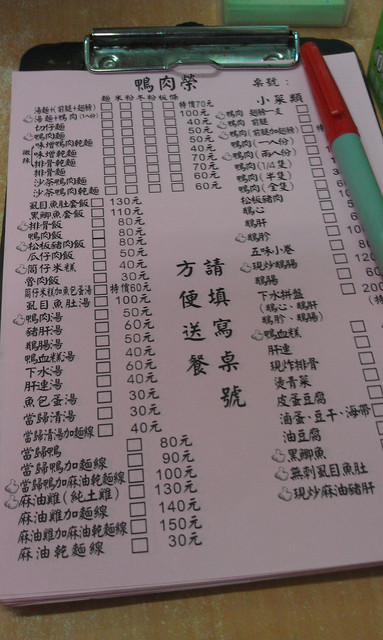 鴨肉榮
桌號：
麵 米粉 冬粉 板條
特價70元
100元
切仔麵 40元
鴨肉麵 50元
味增鴨肉乾麵 50元
味增乾麵 40元
排骨乾麵 70元
排骨麵 70元
沙茶鴨肉麵 60元
沙茶鴨肉乾麵 60元
虱目魚肚套飯 130元
黑鯽魚套飯 110元
排骨飯 80元
鴨肉飯 80元
松板豬肉飯 80元
瓜仔肉飯 50元
筒仔米糕 40元
魯肉飯 30元
筒仔米糕加魚包蛋湯 特價60元
虱目魚肚湯 100元
鴨肉湯 50元
豬肝湯 60元
鵝腸湯 50元
鴨血糕湯 40元
下水湯 60元
肝連湯 40元
魚包蛋湯 30元
當歸清湯 30元
當歸清湯加麵線 40元
當歸鴨 80元
當歸鴨加麵線 90元
當歸鴨加麻油乾麵線 100元
麻油雞(純土雞) 130元
麻油雞加麵線 140元
麻油雞加麻油乾麵線 150元
麻油乾麵線 30元
請填寫桌號
方便送餐
小菜類
鴨肉 翅膀一支
鴨肉 前腿
鴨肉(前腿加翅膀)
鴨肉(一人份)
鴨肉(兩人份)
鴨肉(1/4隻)
鴨肉(半隻)
鴨肉(全隻)
松板豬肉
鵝心
鵝肝
鵝胗
五味小卷
現炒鵝腸
鵝腸
下水拼盤
(鵝心、鵝肝
鵝胗、鵝腸)
鴨血糕
肝連
現炸排骨
燙青菜
皮蛋豆腐
滷蛋、豆干、海帶
油豆腐
黑鯽魚
無刺虱目魚肚
現炒麻油豬肝